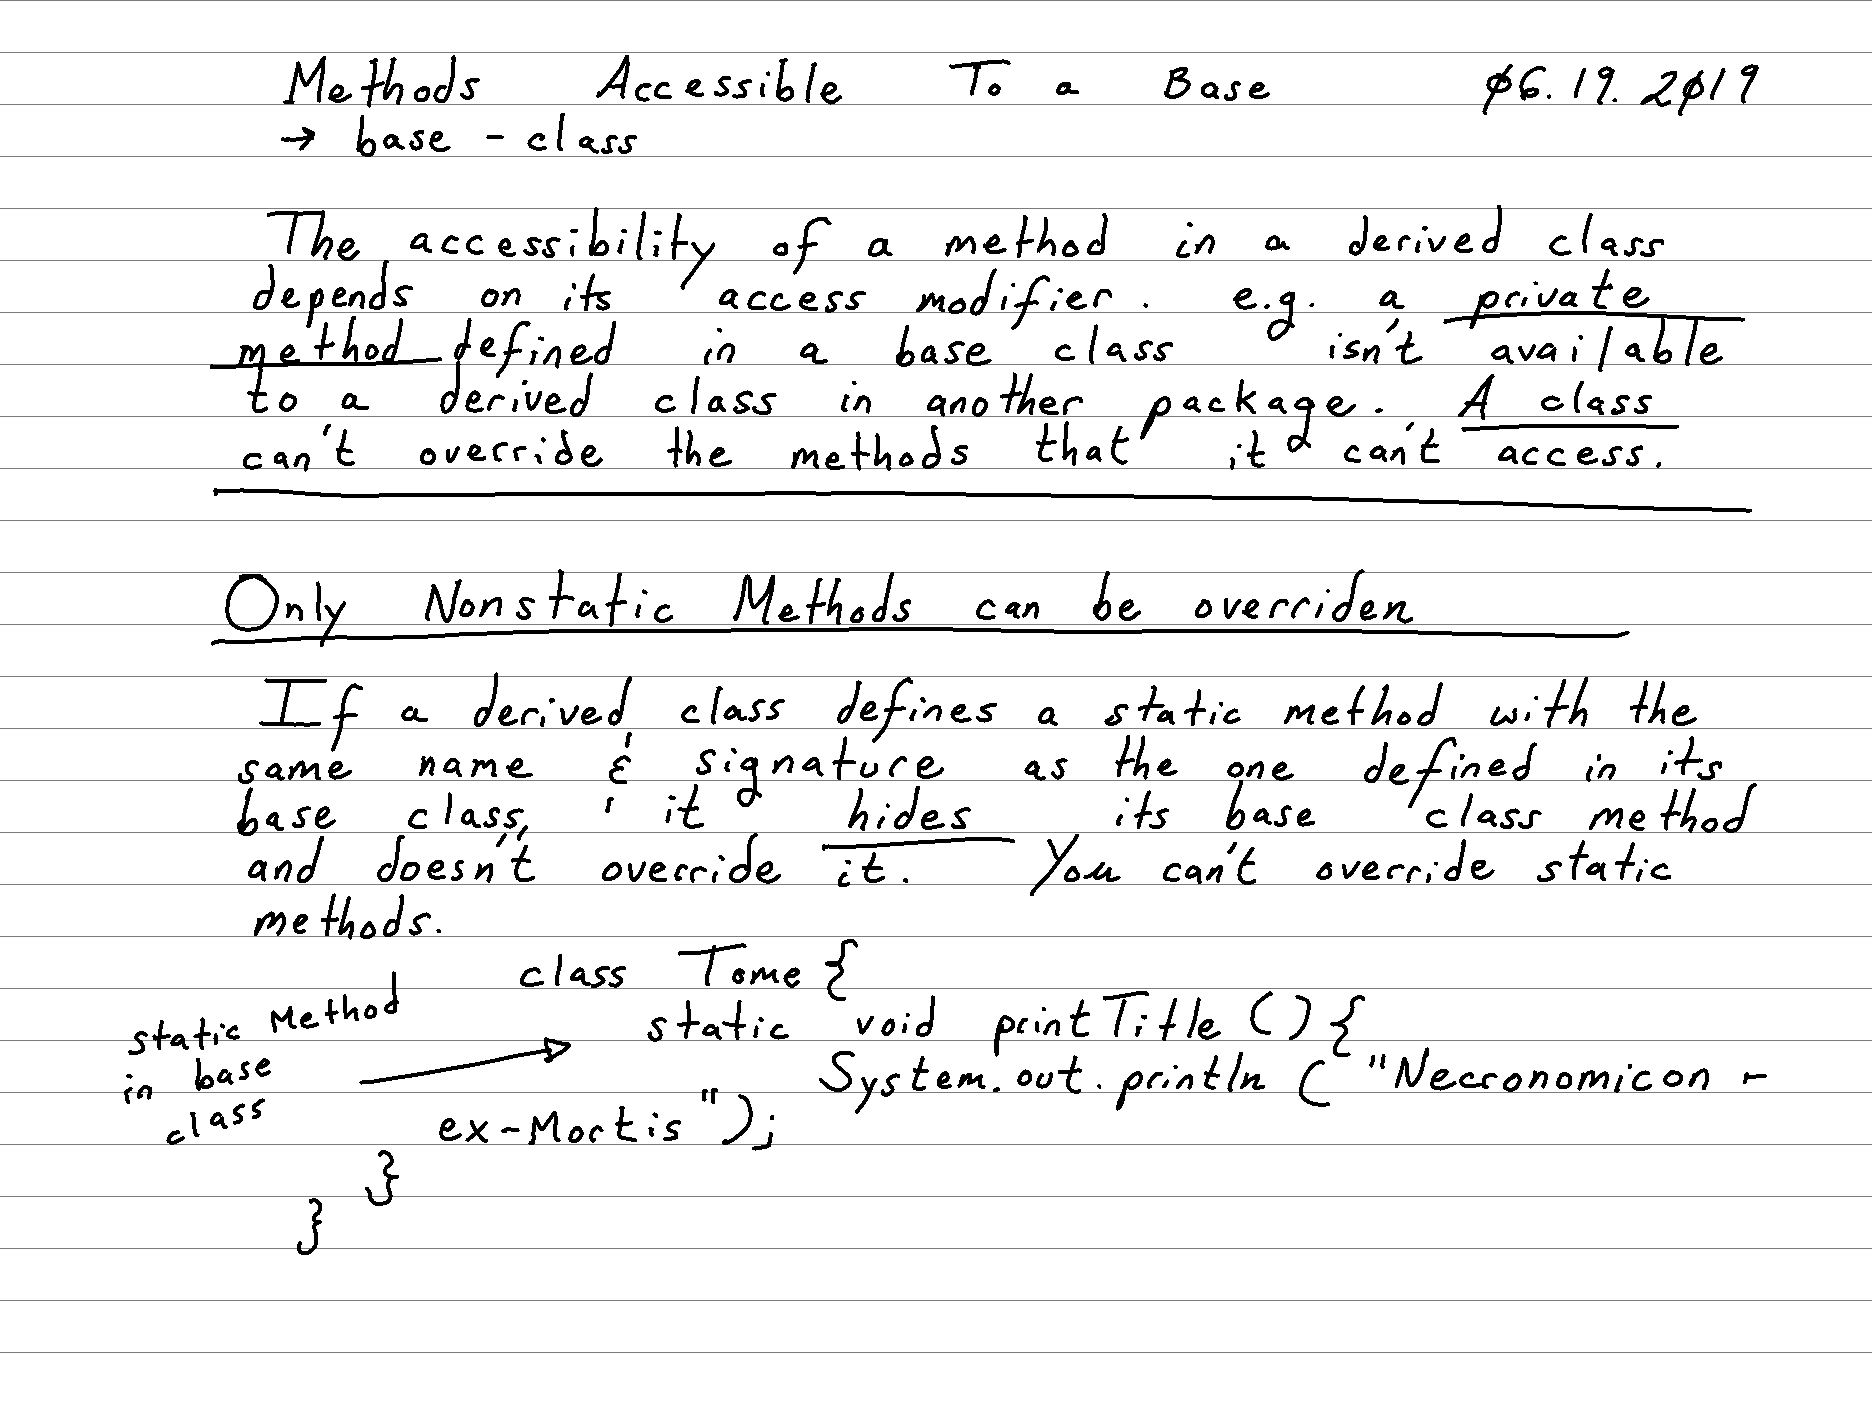 Methods Accessible To a Base 06.19.2019
→ base - class
The accessibility of a method in a derived class
depends on its access modifier. e.g. a private
method defined in a base class isn't available
to a derived class in another package. A class
can't override the methods that it can't access.
Only Nonstatic Methods can be overriden
If a derived class defines a static method with the
same name & signature as the one defined in its
base class, it hides its base class method
and doesn't override it. You can't override static
methods.
class Tome {
static Method
in base
class
static void printTitle () {
System.out.println ( "Necronomicon -
ex-Mortis");
}
}